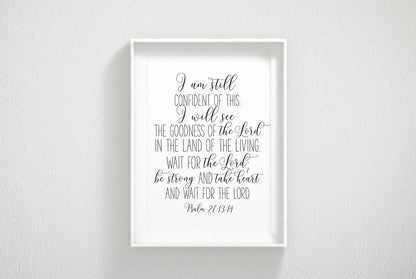 I am still
CONFIDENT OF THIS:
I will see
THE GOODNESS OF the Lord
IN THE LAND OF THE LIVING.
WAIT FOR the Lord;
be strong AND take heart
AND WAIT FOR THE LORD.
Psalm 27:13-14